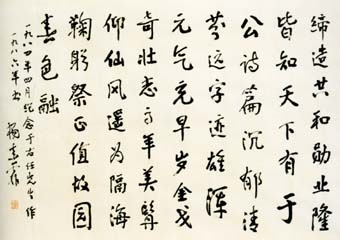 締造共和勋业隆
皆知天下有于
公诗篇沉郁清
芬远字迹雄浑
元气充早岁金戈
奇壮志高年美髯
仰仙风遥为隔海
鞠躬祭正值故园
春色融
一九八四年四月纪念于右任先生作
一九八六年书